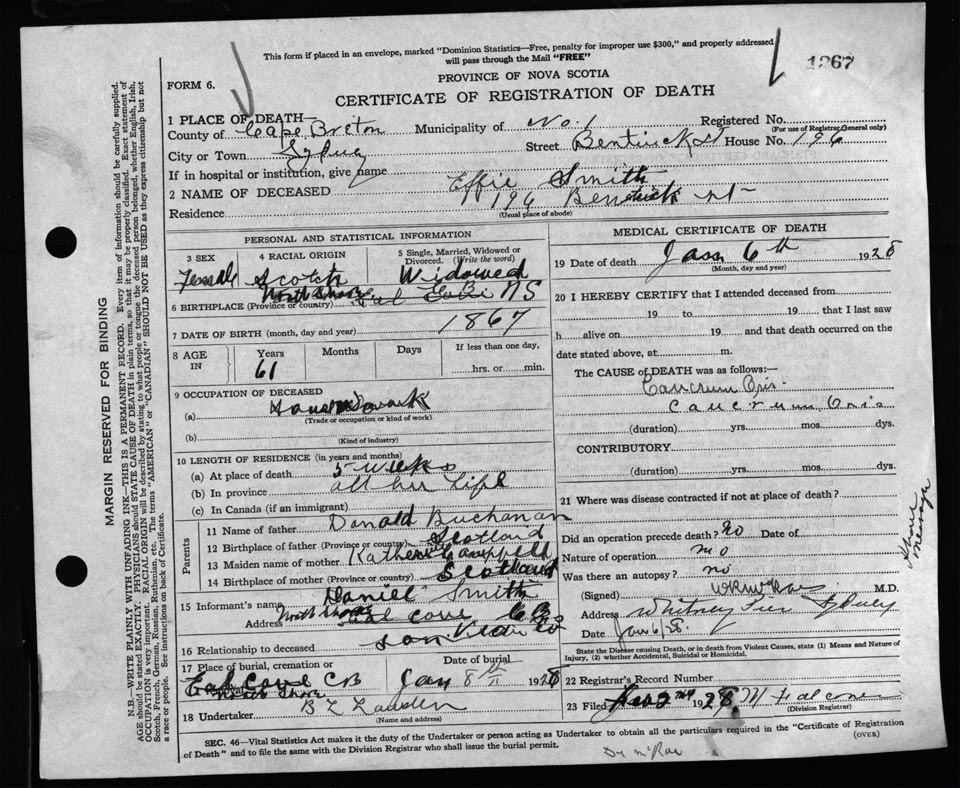 This form if placed in an envelope, marked "Dominion Statistics—Free, penalty for improper use $300," and properly addressed
will pass through the Mail "FREE"
1267
FORM 6.
PROVINCE OF NOVA SCOTIA
CERTIFICATE OF REGISTRATION OF DEATH
1 PLACE OF DEATH—
County of Cape Breton Municipality of No. 1 Registered No.
(For use of Registrar General only)
City or Town Sydney Street Bentinck St House No. 196
If in hospital or institution, give name
2 NAME OF DECEASED Effie Smith
Residence 196 Bentinck St
(Usual place of abode)
PERSONAL AND STATISTICAL INFORMATION
3 SEX Female
4 RACIAL ORIGIN Scotch
5 Single, Married, Widowed or Divorced. (Write the word) Widowed
6 BIRTHPLACE (Province or country) North Shore NS
7 DATE OF BIRTH (month, day and year) 1867
8 AGE IN Years 61 Months Days If less than one day, hrs. or min.
9 OCCUPATION OF DECEASED
(a) Housework
(Trade or occupation or kind of work)
(b)
(Kind of industry)
10 LENGTH OF RESIDENCE (in years and months)
(a) At place of death 5 weeks
(b) In province all her life
(c) In Canada (if an immigrant)
Parents
11 Name of father Donald Buchanan
12 Birthplace of father (Province or country) Scotland
13 Maiden name of mother Katherine Campbell
14 Birthplace of mother (Province or Country) Scotland
15 Informant's name Daniel Smith
Address North Shore CB
16 Relationship to deceased son
17 Place of burial, cremation or
Cove CB
North Shore
Date of burial
Jan 8th 1928
18 Undertaker
(Name and address)
MEDICAL CERTIFICATE OF DEATH
19 Date of death Jan 6th 1928
(Month, day and year)
20 I HEREBY CERTIFY that I attended deceased from
19 to 19 that I last saw
h alive on 19 and that death occurred on the
date stated above, at m.
The CAUSE of DEATH was as follows:—
Cancrum Oris
Cancrum Oris
(duration) yrs. mos. dys.
CONTRIBUTORY
(duration) yrs. mos. dys.
21 Where was disease contracted if not at place of death?
Did an operation precede death? no Date of
Nature of operation no
Was there an autopsy? no
(Signed) M.D.
Address Whitney Pier Sydney
Date Jan 6/28.
State the Disease causing Death, or in death from Violent Causes, state (1) Means and Nature of
Injury, (2) whether Accidental, Suicidal or Homicidal.
22 Registrar's Record Number
23 Filed 1928. M Falconer
(Division Registrar)
SEC. 46—Vital Statistics Act makes it the duty of the Undertaker or person acting as Undertaker to obtain all the particulars required in the "Certificate of Registration
of Death" and to file the same with the Division Registrar who shall issue the burial permit.
(OVER)
Dr McRae
Phone message
MARGIN RESERVED FOR BINDING
N.B.—WRITE PLAINLY WITH UNFADING INK—THIS IS A PERMANENT RECORD. Every item of information should be carefully supplied.
AGE should be stated EXACTLY. PHYSICIANS should STATE CAUSE OF DEATH in plain terms, so that it may be properly classified. Exact statement of
OCCUPATION is very important. RACIAL ORIGIN will be described by stating to what people or tongue the deceased person belonged, whether English, Irish,
Scotch, French, German, Russian, Ruthenian, etc. The terms "AMERICAN" or "CANADIAN" SHOULD NOT BE USED as they express citizenship but not
a race or people. See instructions on back of Certificate.